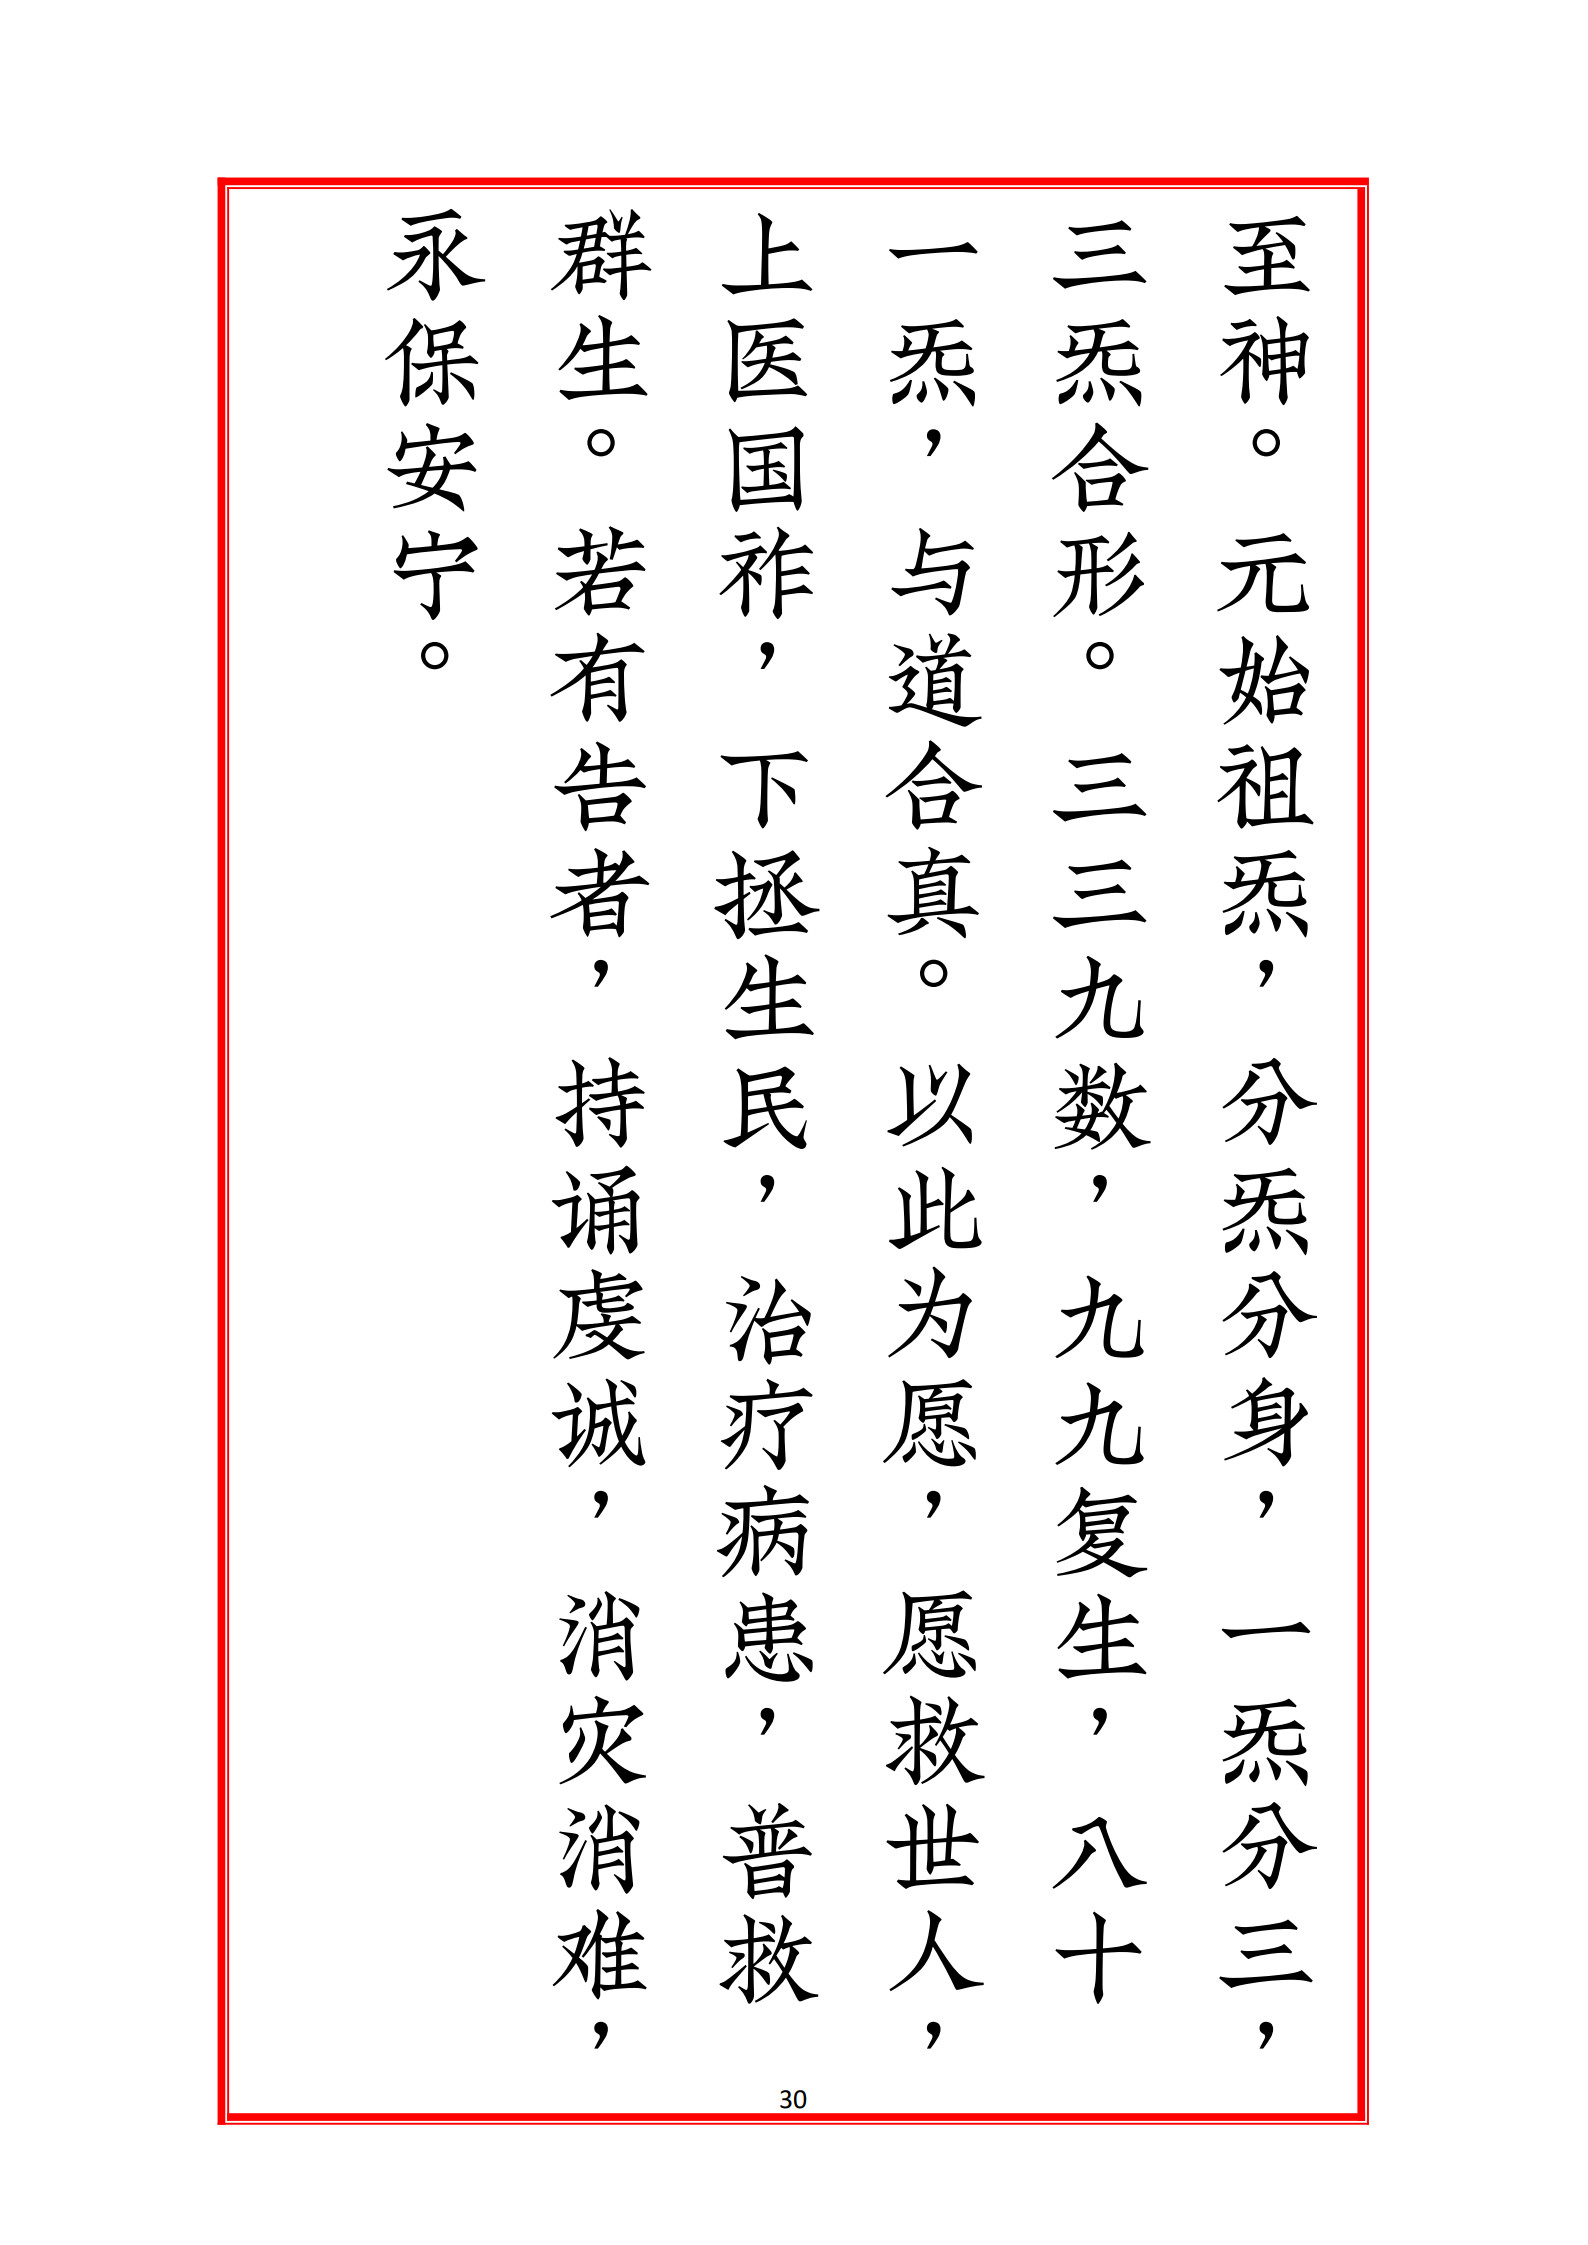 至神。元始祖炁，分炁分身，一炁分三，
三炁合形。三三九数，九九复生，八十
一炁，与道合真。以此为愿，愿救世人，
上医国祚，下拯生民，治疗病患，普救
群生。若有告者，持诵虔诚，消灾消难，
永保安宁。
30